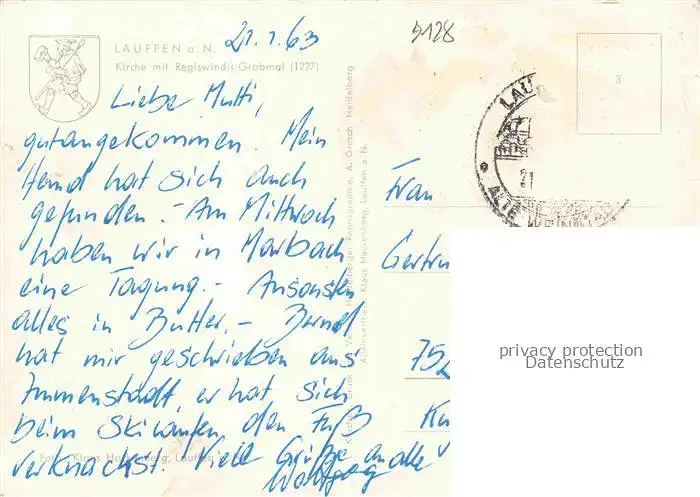 LAUFFEN a. N.
Kirche mit Regiswindis-Grabmal (1227)
21.1.63
5128
Liebe Mutti,
gutangekommen. Mein
Hemd hat sich auch
gefunden. - Am Mittwoch
haben wir in Marbach
eine Tagung. - Ansonsten
alles in Butter. - Bernd
hat mir geschrieben aus
Immenstadt, er hat sich
beim Skilaufen den Fuß
verknackst. Viele Grüße an alle
Wolfgang
Foto: Klaus Hackenberg, Lauffen
A. Gransch, Heidelberg
Klaus Hackenberg, Lauffen a. N.
Frau
Gertru
75
3
LAU
21
ALTE WEIN
privacy protection
Datenschutz